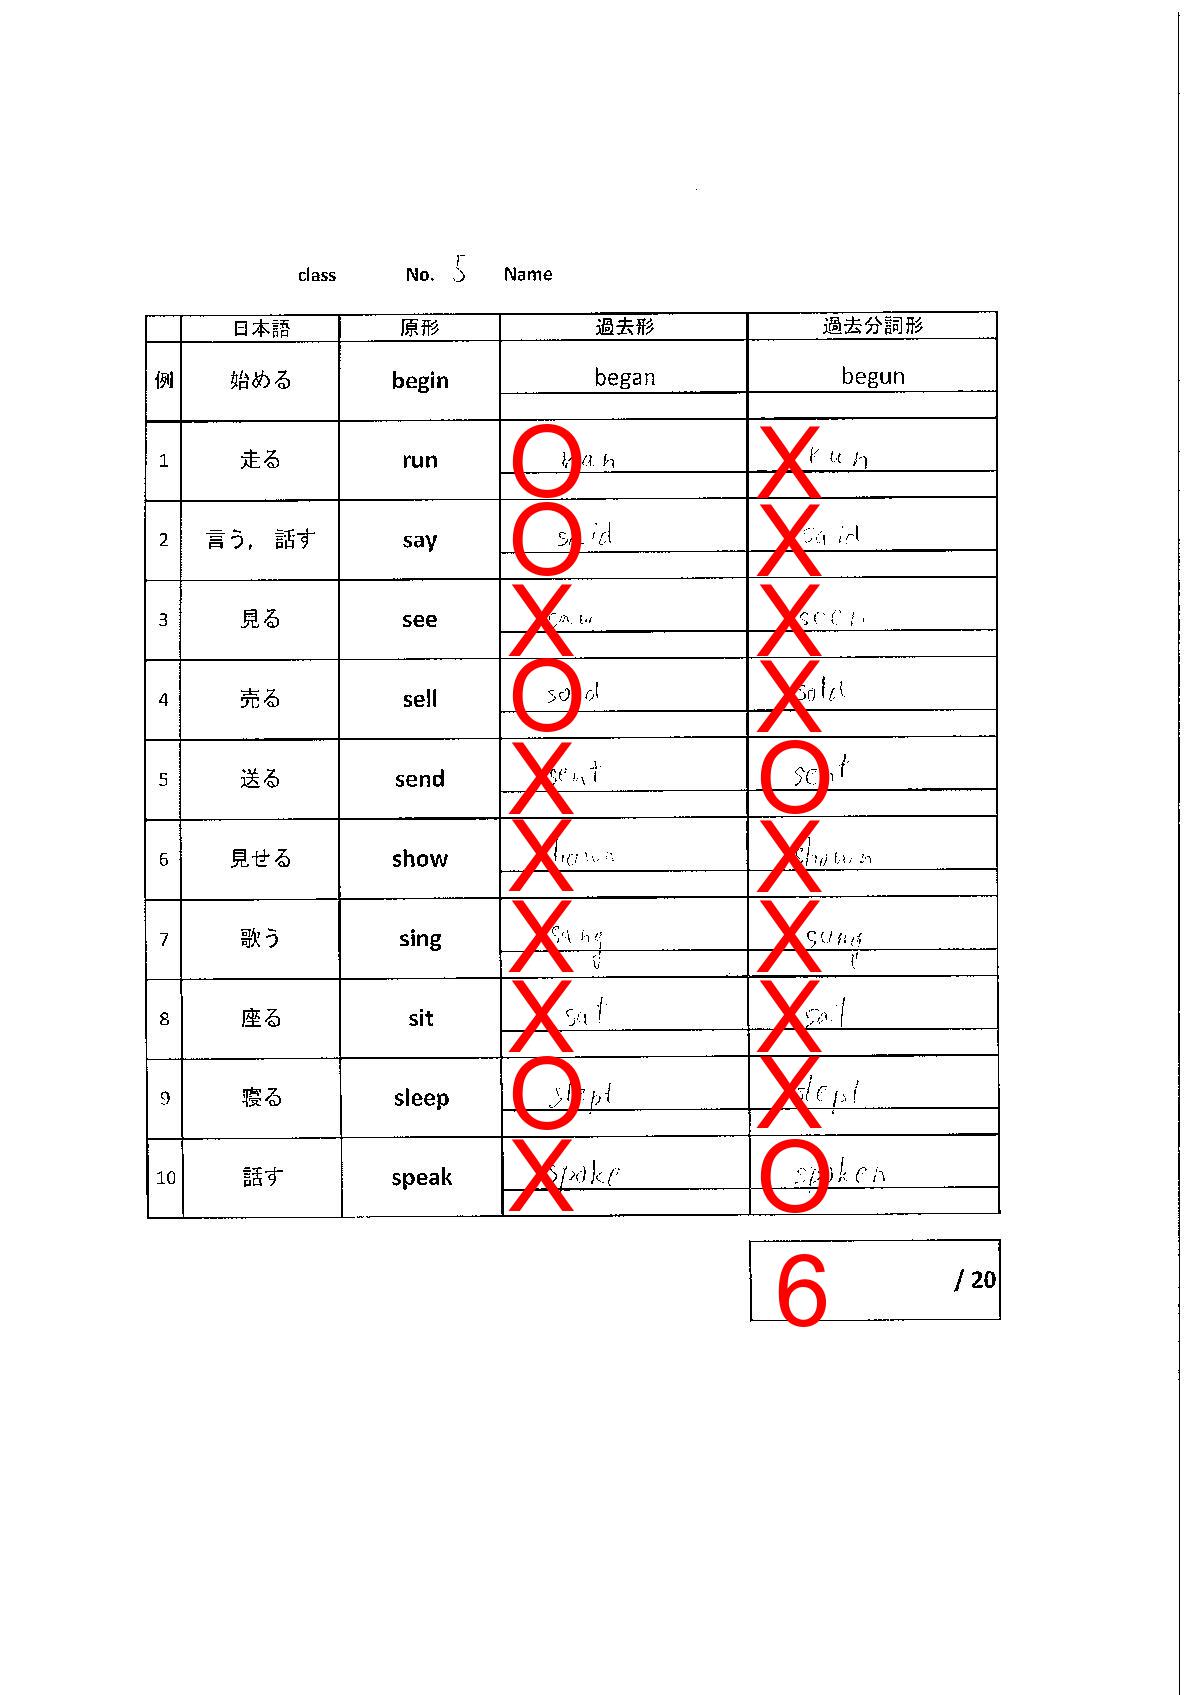 class No. 5 Name
日本語 原形 過去形 過去分詞形
例 始める begin began begun
1 走る run O ran X run
2 言う, 話す say O said X said
3 見る see X saw X seen
4 売る sell O sold X sold
5 送る send X sent O sent
6 見せる show X X shown
7 歌う sing X sang X sung
8 座る sit X sat X sat
9 寝る sleep O slept X slept
10 話す speak X spoke O spoken
6 / 20